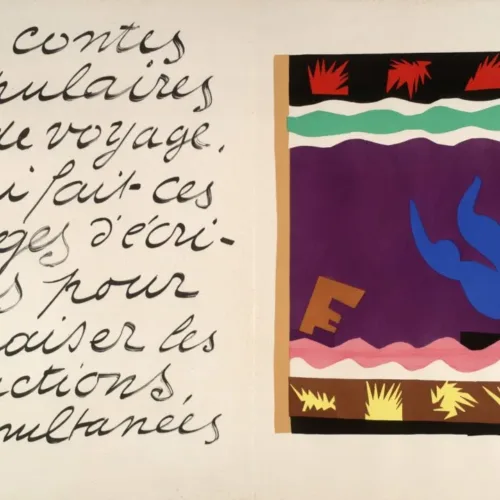 contes
pulaires
de voyage.
i fait ces
ges d'écri-
s pour
aiser les
actions,
multanées